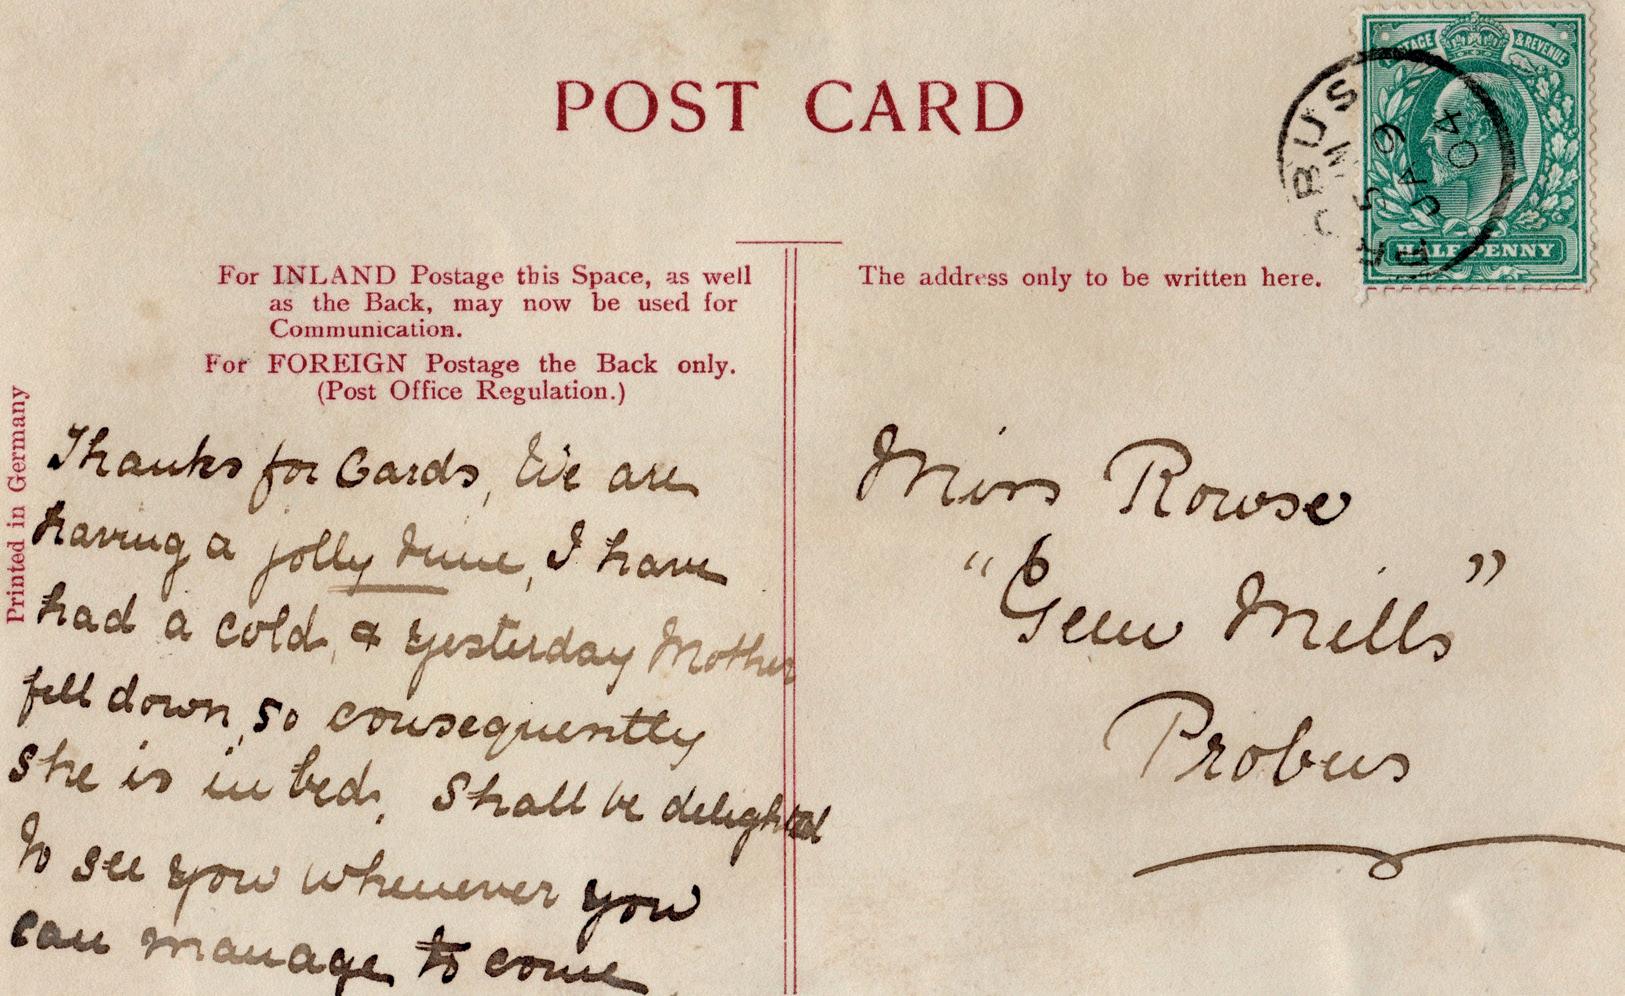 POST CARD
POSTAGE & REVENUE
HALF PENNY
BUS
JA 6
04
For INLAND Postage this Space, as well
as the Back, may now be used for
Communication.
For FOREIGN Postage the Back only.
(Post Office Regulation.)
The address only to be written here.
Printed in Germany
Thanks for Cards, We are
having a jolly time, I have
had a cold, & yesterday Mother
fell down, so consequently
she is in bed. Shall be delighted
to see you whenever you
can manage to come
Miss Rowse
"Gem Mills"
Probus